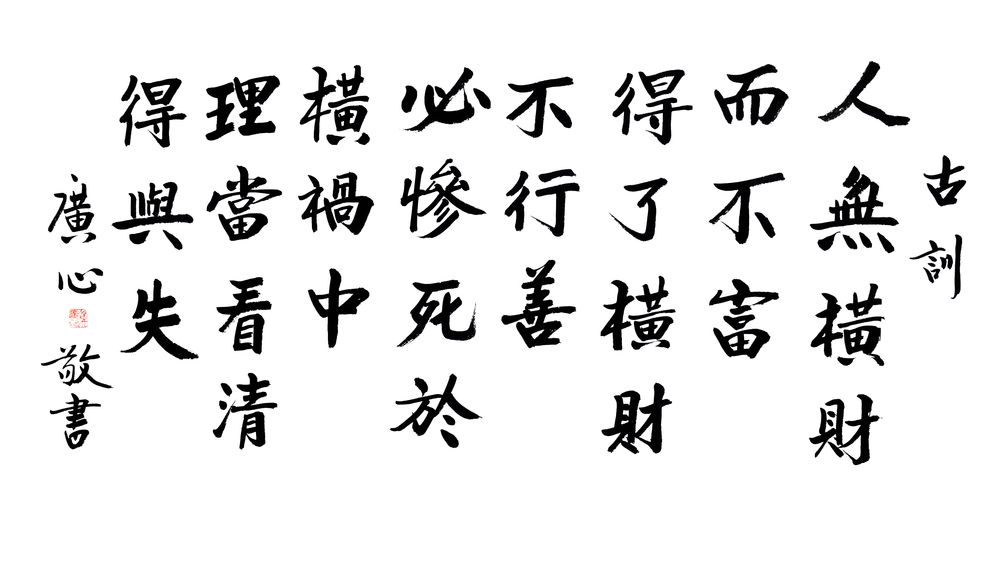 古訓
人無橫財
而不富
得了橫財
不行善
必慘死於
橫禍中
理當看清
得與失
廣心
敬書